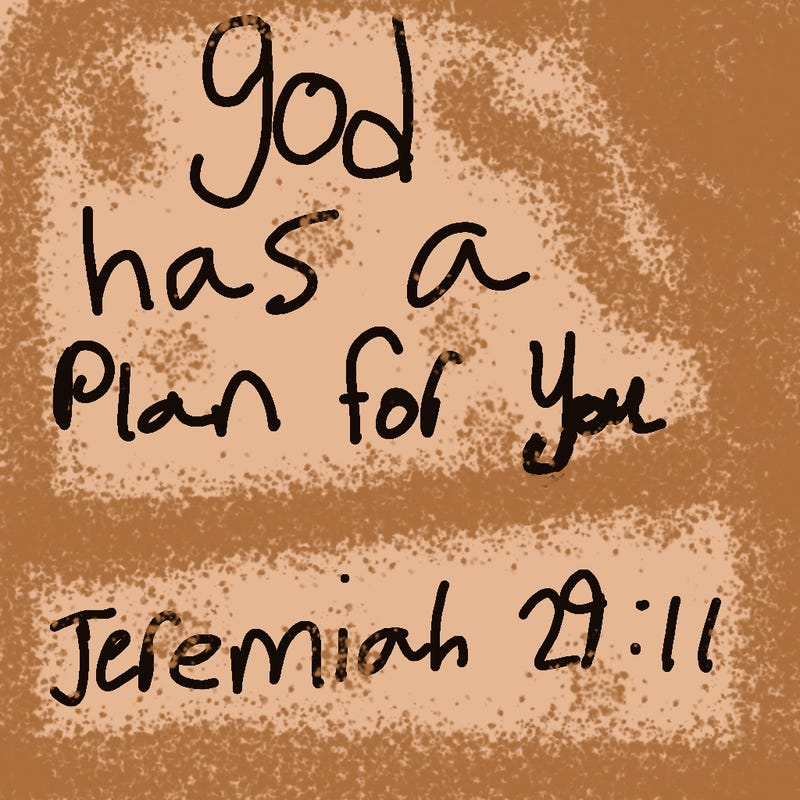 god
has a
Plan for you
Jeremiah 29:11